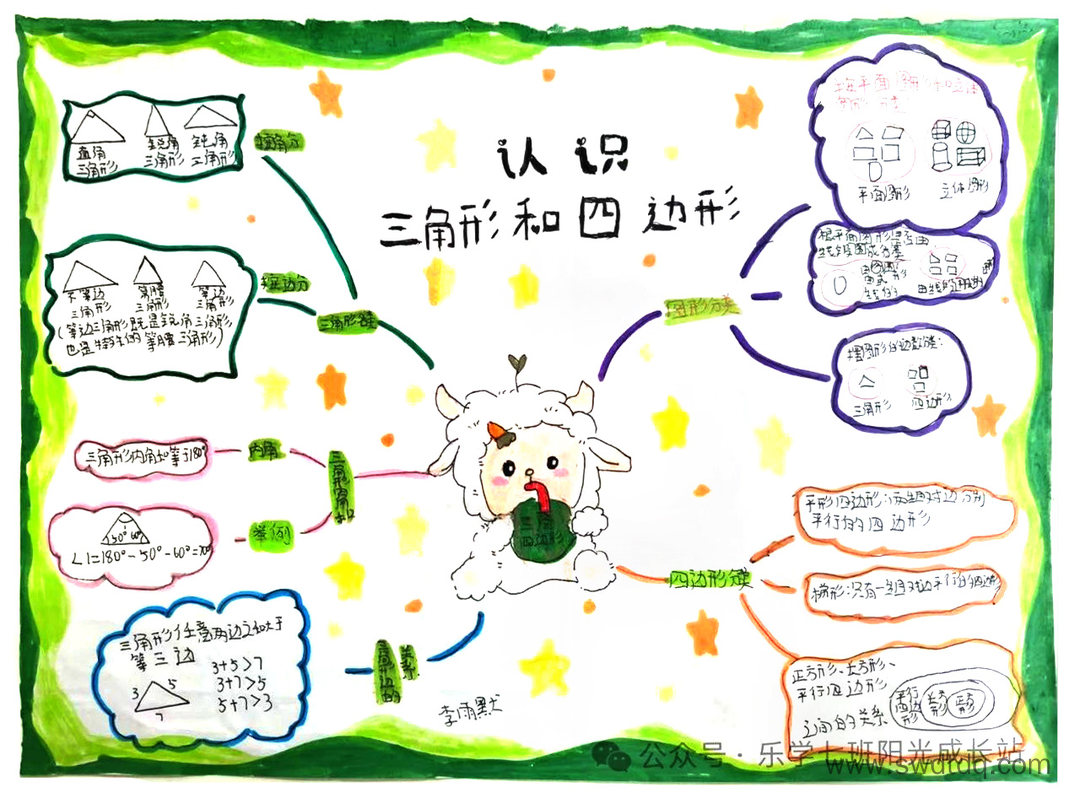 认识
三角形和四边形
按角分
直角
三角形
锐角
三角形
钝角
三角形
按边分
不等边
三角形
等腰
三角形
等边
三角形
(等边三角形既是锐角三角形,
也是特殊的等腰三角形)
三角形分类
内角
三角形内角和等于180°
举例
50° 60°
∠1=180°-50°-60°=70°
三角形任意两边之和大于
第三边
3+5>7
3+7>5
5+7>3
3
5
7
李雨默
三角
四边形
图形分类
按平面图形和立体
图形分类
平面图形
立体图形
三角形
四边形
四边形分类
平形四边形:两组对边分别
平行的四边形
梯形:只有一组对边平行的四边形
正方形、长方形、
平行四边形
之间的关系
平行
四边
形
长方
形
正方
形
公众号·乐学七班阳光成长站
www.swdrdq.com